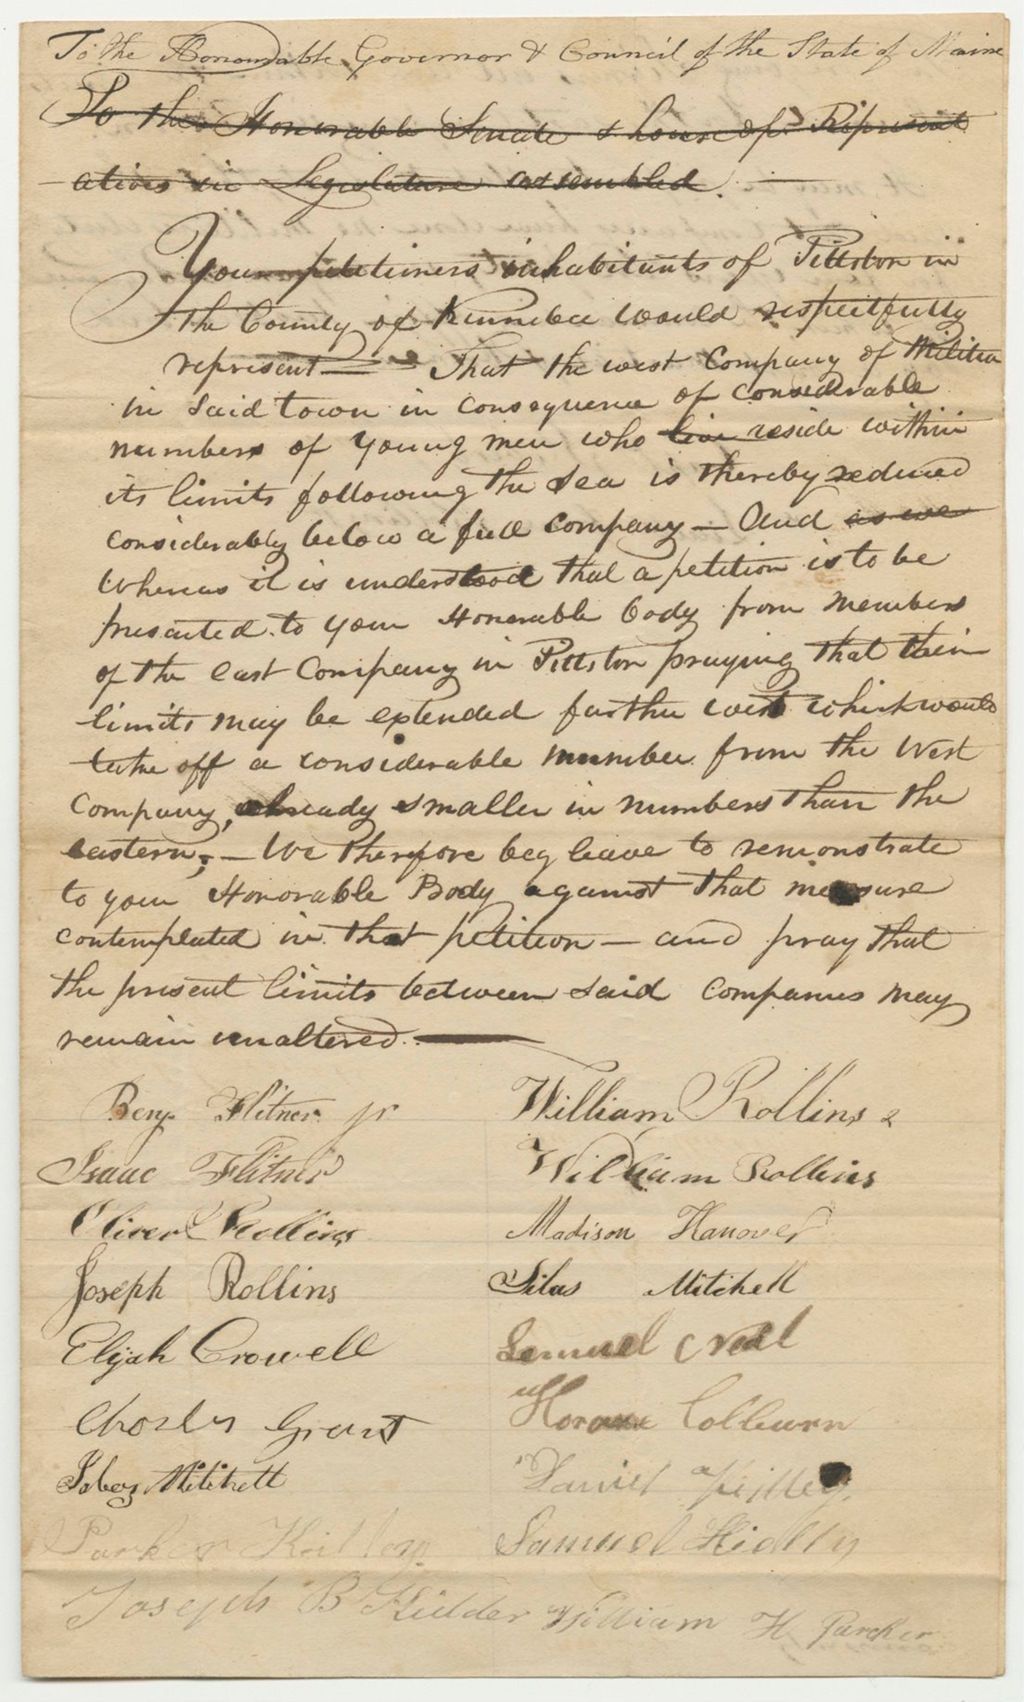 To the Honourable Governor & Council of the State of Maine
To the Honorable Senate & house of Represent
atives in Legislature assembled.
Your petitioners inhabitants of Pittston in
the County of Kennebec would respectfully
represent — That the west Company of Militia
in said town in consequence of considerable
numbers of young men who live reside within
its limits following the sea is thereby reduced
considerably below a full company — And as we
Whereas it is understood that a petition is to be
presented to your Honorable body from members
of the east Company in Pittston praying that their
limits may be extended farther west which would
take off a considerable number from the West
Company, already smaller in numbers than the
eastern; — We therefore beg leave to remonstrate
to your Honorable Body against that measure
contemplated in that petition — and pray that
the present limits between said companies may
remain unaltered. —
Benj Flitner jr William Rollins 2
Isaac Flitner William Rollins
Oliver Rollins Madison Hanover
Joseph Rollins Silas Mitchell
Elijah Crowell Samuel Neal
Charles Grant Horace Colburn
Jabez Mitchell Daniel
Parker Samuel
Joseph B Kidder William H Parker